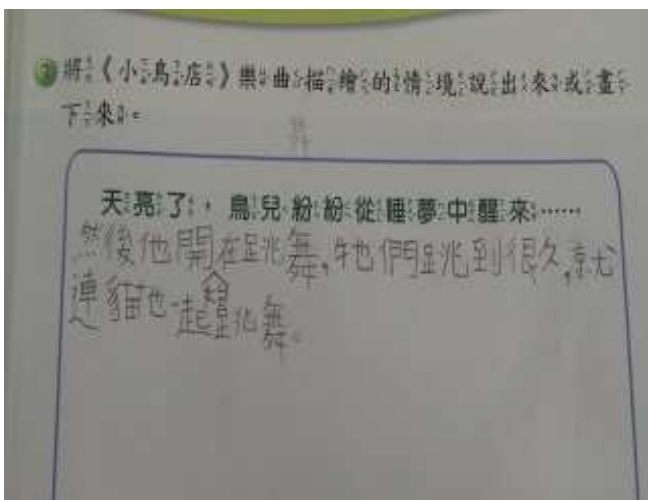 2 將《小鳥店》樂曲描繪的情境說出來或畫
下來。
天亮了,鳥兒紛紛從睡夢中醒來……
然後他開在跳舞,牠們跳到很久,就
連貓也一起跳舞。